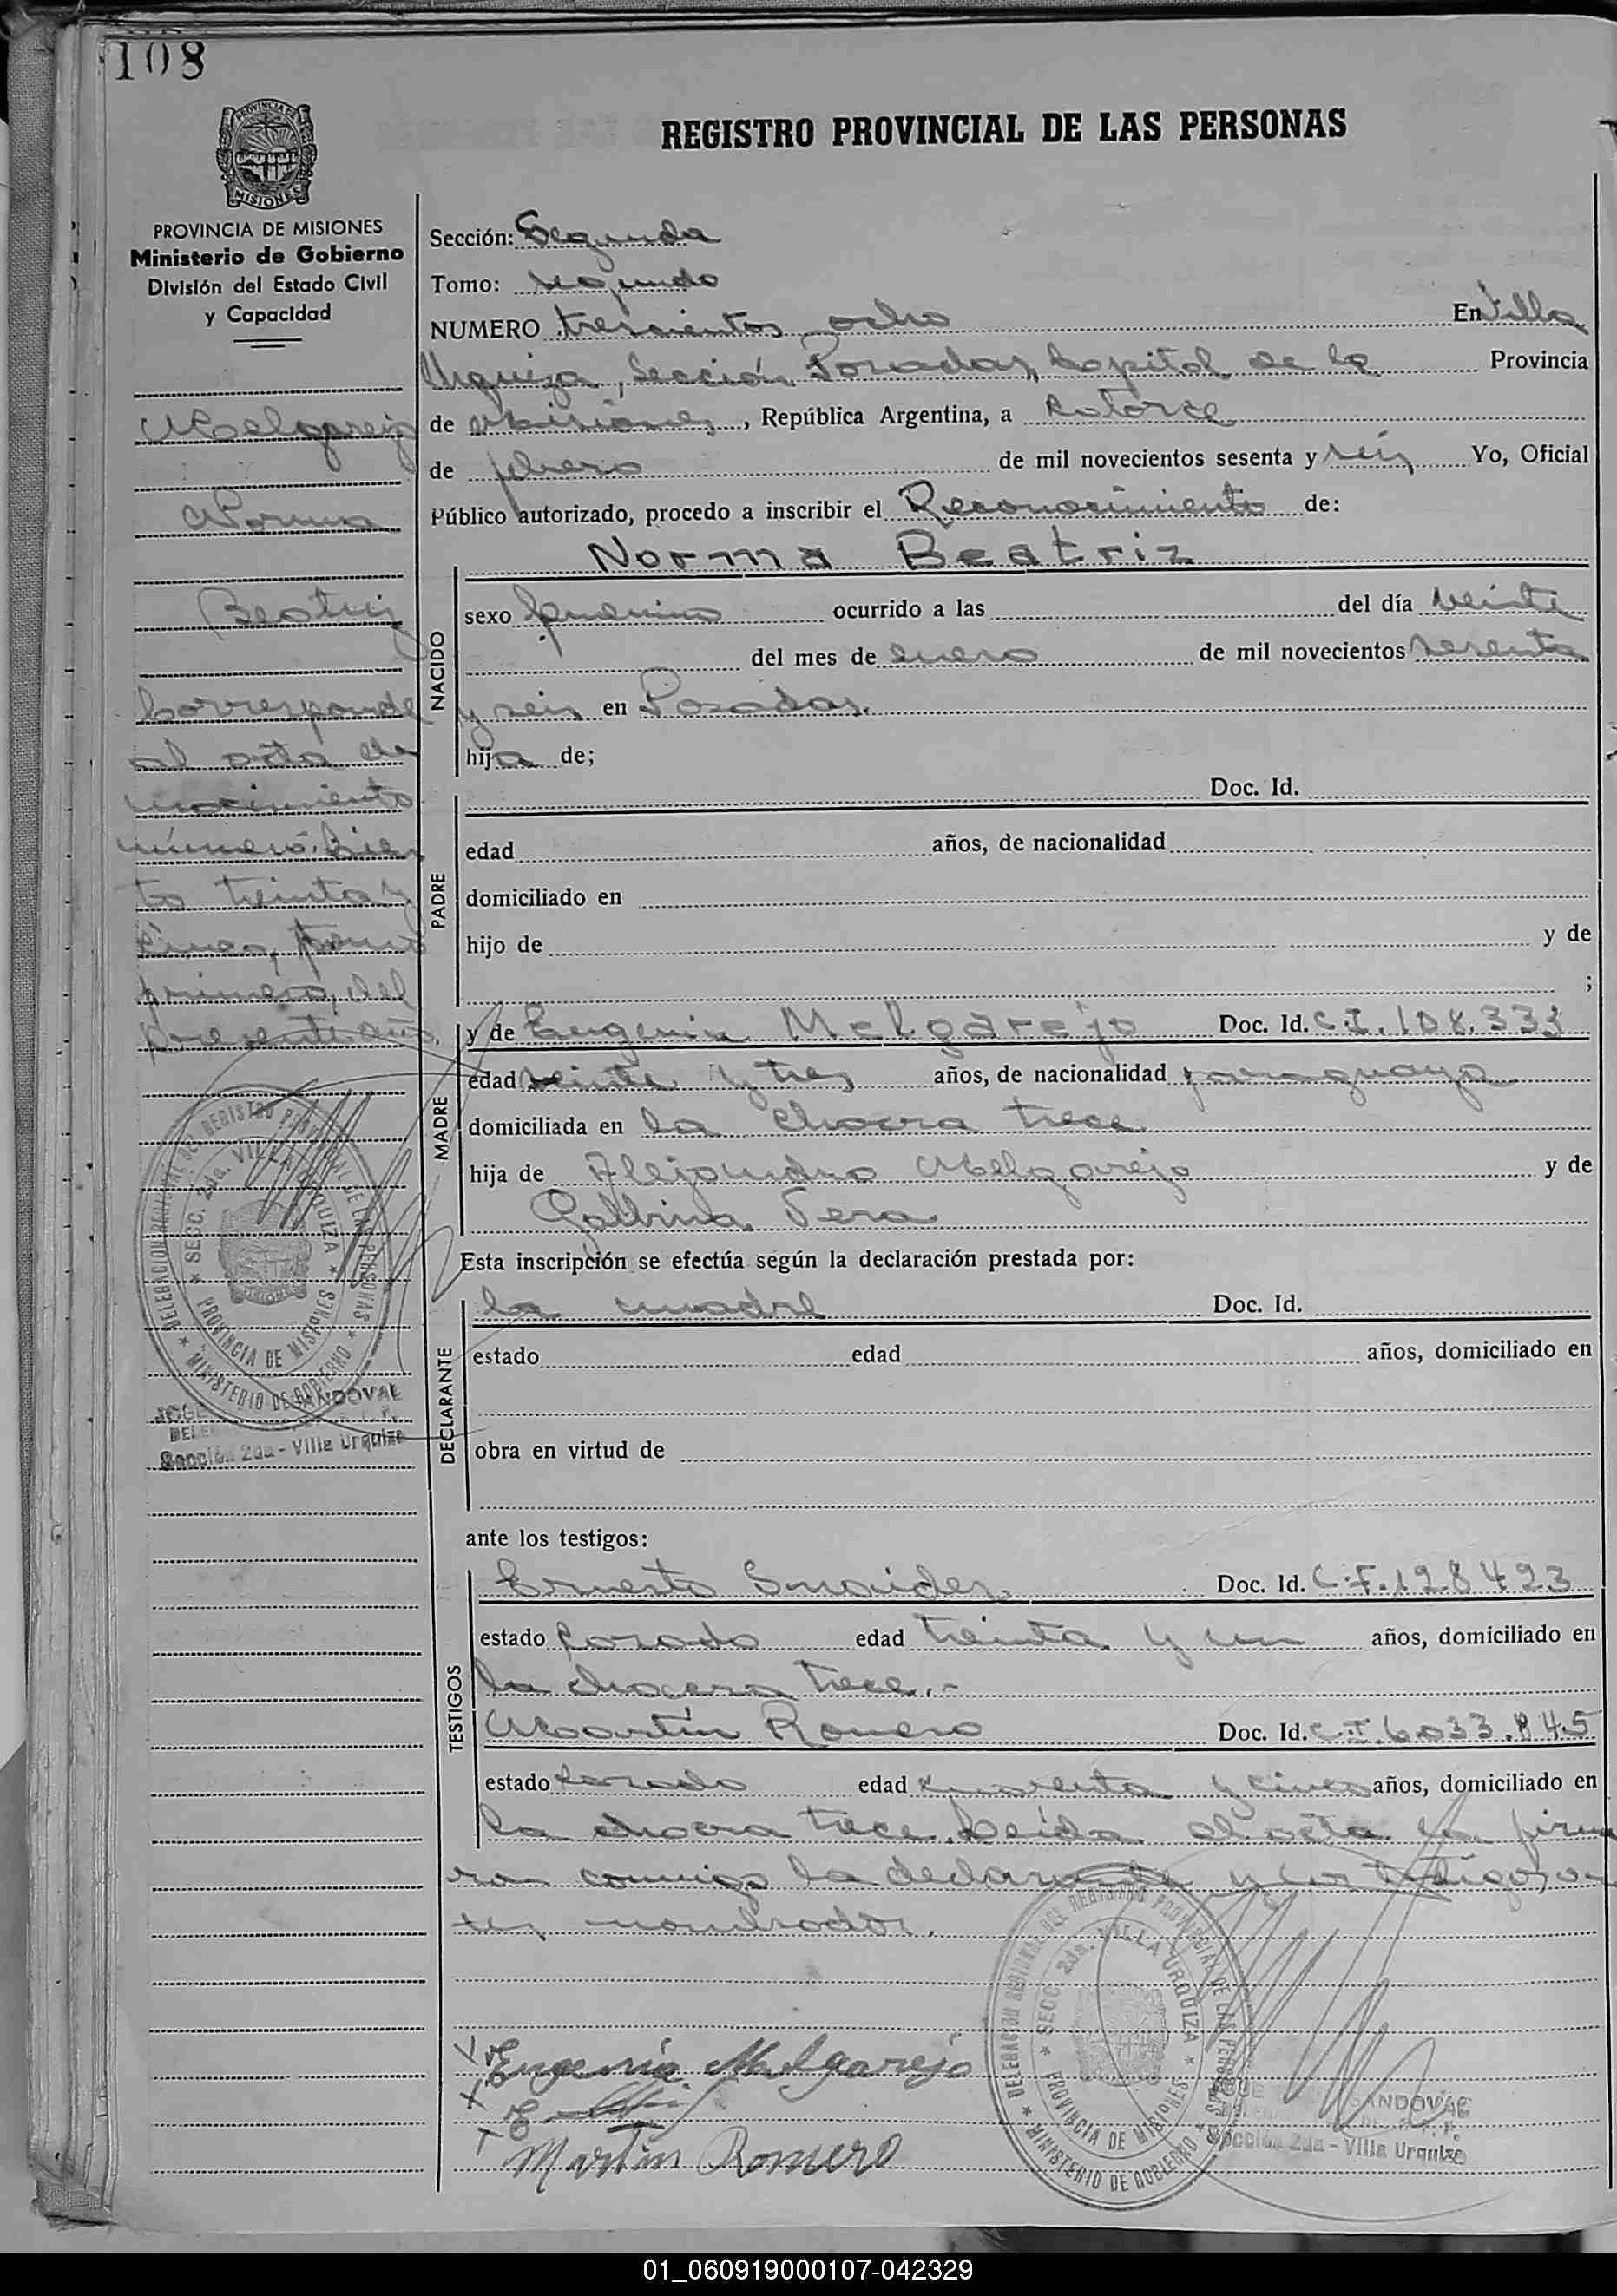 108
PROVINCIA DE MISIONES
MISIONES
REGISTRO PROVINCIAL DE LAS PERSONAS
PROVINCIA DE MISIONES
Ministerio de Gobierno
División del Estado Civil
y Capacidad
Melgarejo
Norma
Beatriz
Corresponde
al acta de
nacimiento
número cien
to treinta y
cinco, tomo
primero, del
presente año.
DELEGACION REGIONAL DEL REGISTRO PROVINCIAL DE LAS PERSONAS
SECC. 2da. VILLA URQUIZA
PROVINCIA DE MISIONES
MINISTERIO DE GOBIERNO
SANDOVAL
Sección 2da - Villa Urquiza
Sección: Segunda
Tomo: segundo
NUMERO trescientos ocho En Villa
Urquiza, Sección Posadas, Capital de la Provincia
de Misiones, República Argentina, a catorce
de febrero de mil novecientos sesenta y seis Yo, Oficial
Público autorizado, procedo a inscribir el Reconocimiento de:
Norma Beatriz
NACIDO
sexo femenino ocurrido a las del día veinte
del mes de enero de mil novecientos sesenta
y seis en Posadas.
hija de;
PADRE
Doc. Id.
edad años, de nacionalidad
domiciliado en
hijo de y de
;
MADRE
y de Eugenia Melgarejo Doc. Id. C.I. 108.333
edad veinte y tres años, de nacionalidad paraguaya
domiciliada en la chacra trece
hija de Alejandro Melgarejo y de
Vera
Esta inscripción se efectúa según la declaración prestada por:
DECLARANTE
la madre Doc. Id.
estado edad años, domiciliado en
obra en virtud de
ante los testigos:
TESTIGOS
Ernesto Doc. Id. C.I. 128423
estado casado edad treinta y un años, domiciliado en
la chacra trece.-
Martín Romero Doc. Id. C.I. 6.033.845
estado casado edad cuarenta y cinco años, domiciliado en
la chacra trece. Leída el acta la firma
ron conmigo la declarante y los testigos an
tes nombrados.
Eugenia Melgarejo
Martín Romero
DELEGACION REGIONAL DEL REGISTRO PROVINCIAL DE LAS PERSONAS
SECC. 2da. VILLA URQUIZA
PROVINCIA DE MISIONES
MINISTERIO DE GOBIERNO
SANDOVAL
Sección 2da - Villa Urquiza
01_060919000107-042329